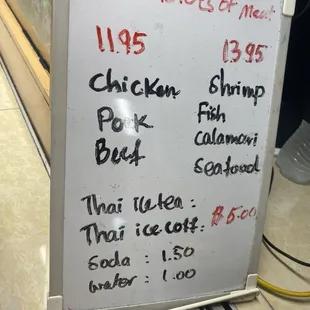 of Meat
11.95 13.95
Chicken Shrimp
Pork Fish
Beef Calamari
Seafood
Thai ice tea :
Thai ice coff: $5.00
Soda : 1.50
water : 1.00